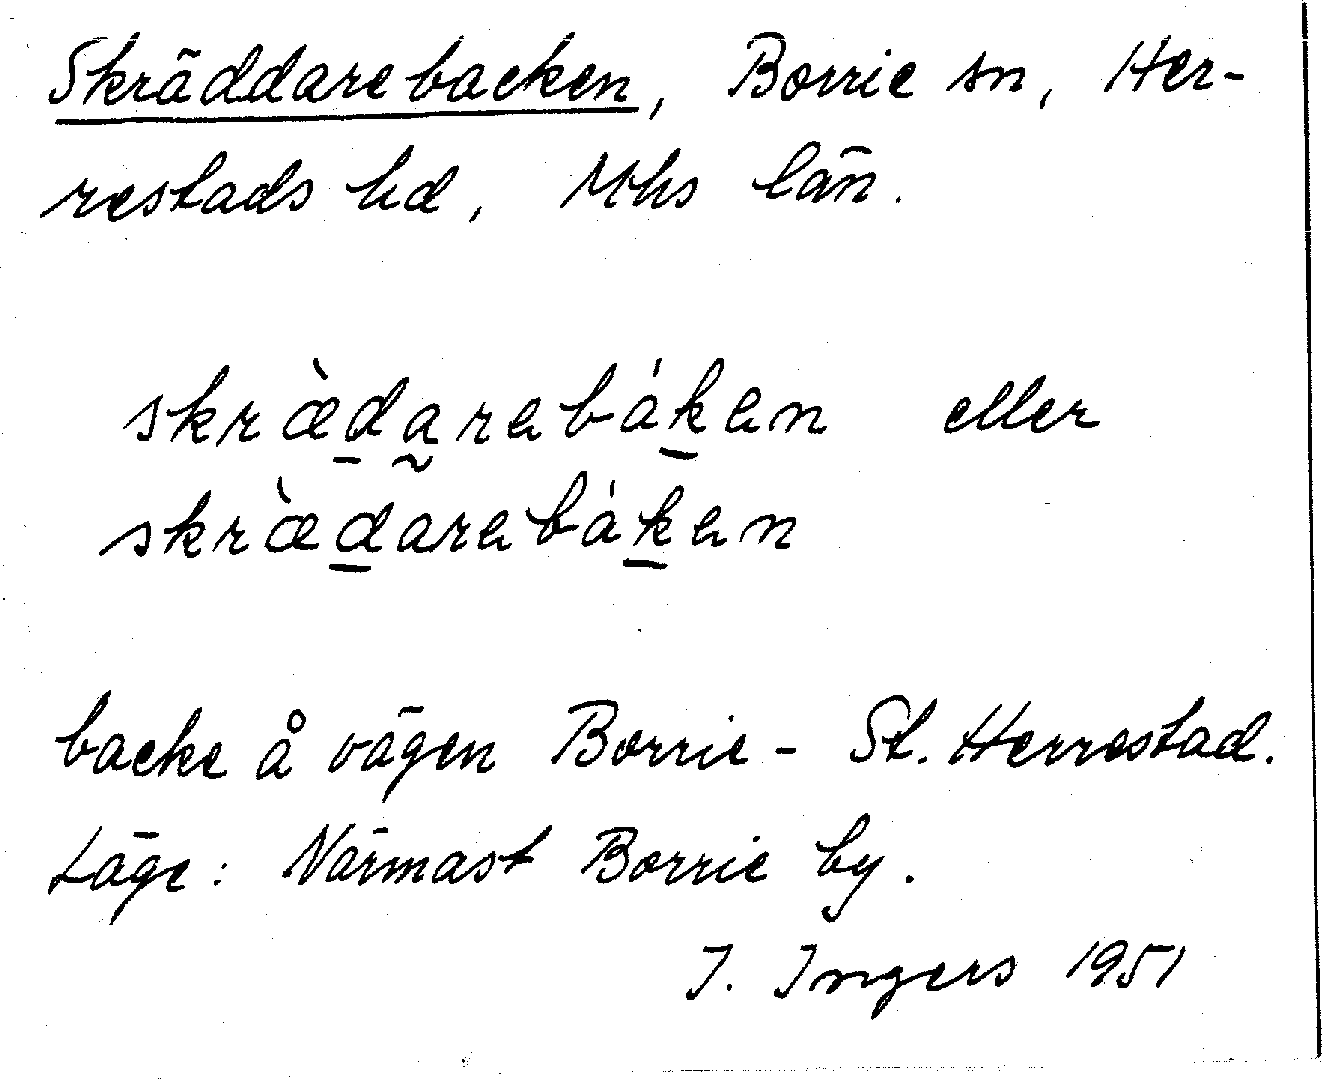 Skräddarebacken, Borrie sn, Her-
restads hd, Mhs län.
skræ̀d̲a̰rebák̲en eller
skræ̀d̲arebák̲en
backe å vägen Borrie - St. Herrestad.
Läge: Närmast Borrie by.
I. Ingers 1951